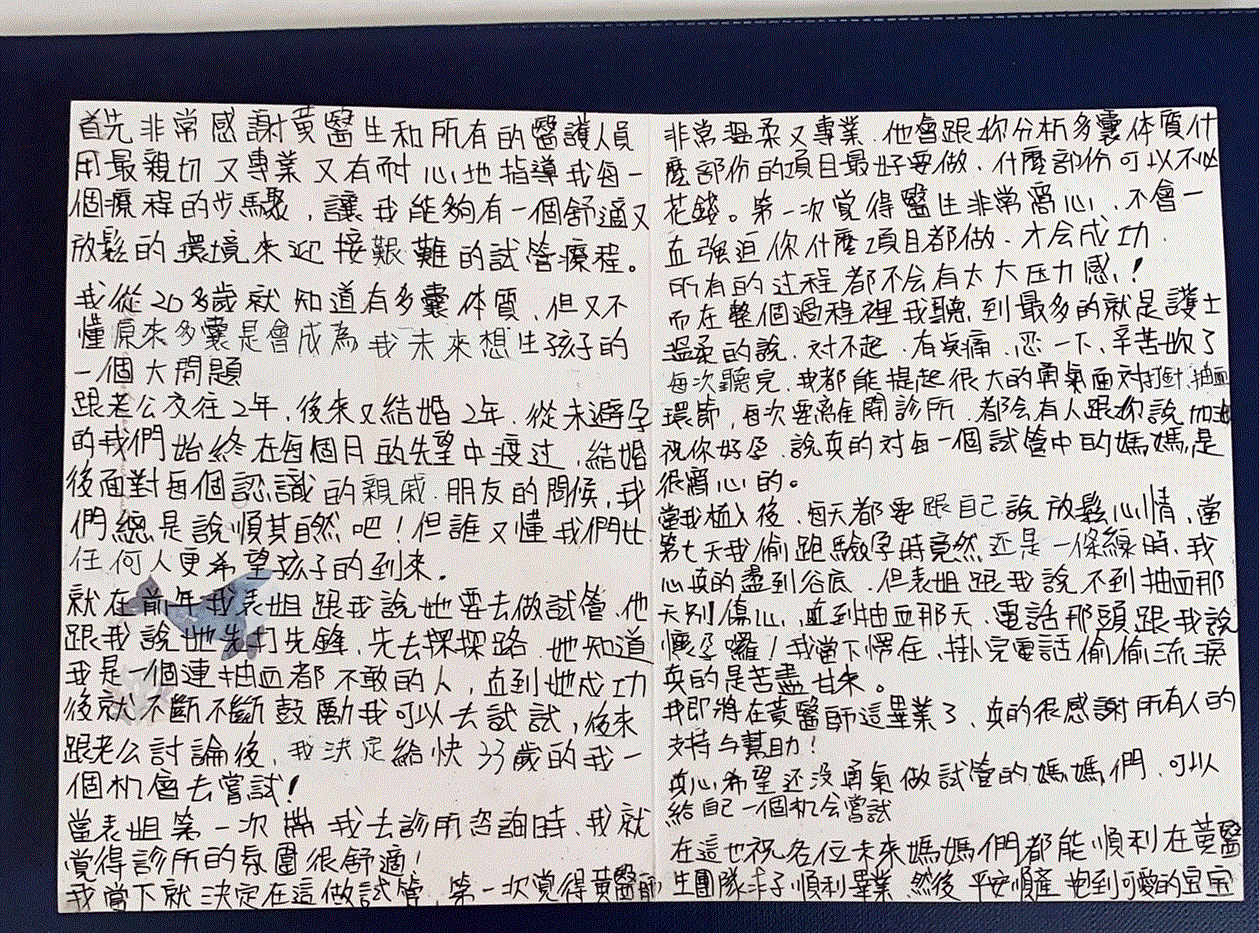 首先非常感謝黃醫生和所有的醫護人員
用最親切又專業又有耐心地指導我每一
個療程的步驟，讓我能夠有一個舒適又
放鬆的環境來迎接艱難的試管療程。
我從20多歲就知道有多囊体質，但又不
懂原來多囊是會成為我未來想生孩子的
一個大問題
跟老公交往2年，後來又結婚2年，從未避孕
的我們始終在每個月的失望中渡过，結婚
後面對每個認識的親戚．朋友的問候，我
們總是說順其自然吧！但誰又懂我們比
任何人更希望孩子的到來。
就在前年我表姐跟我說她要去做試管，他
跟我說她先打先鋒，先去探探路．她知道
我是一個連抽血都不敢的人，直到她成功
後就不斷不斷鼓勵我可以去試試，後來
跟老公討論後，我決定給快33歲的我一
個机會去嘗試！
當表姐第一次帶我去診所咨詢時，我就
覺得診所的氛圍很舒適！
我當下就決定在這做試管，第一次覺得黃醫師
非常溫柔又專業．他會跟妳分析多囊体質什
麼部份的項目最好要做．什麼部份可以不必
花錢。第一次覚得醫生非常窩心，不會一
直强迫你什麼項目都做．才会成功．
所有的过程都不会有太大压力感！
而在整個過程裡我聽到最多的就是護士
溫柔的說．对不起．有點痛．忍一下、辛苦妳了
每次聽完．我都能提起很大的勇氣面对打針．抽血
環節，每次要離開診所．都会有人跟妳說加油
祝你好孕．說真的对每一個試管中的媽媽是
很窩心的。
當我植入後．每天都要跟自己說放鬆心情，當
第七天我偷跑驗孕時竟然还是一條線時，我
心真的盪到谷底．但表姐跟我說不到抽血那
天別傷心，直到抽血那天．電話那頭跟我說
懷孕囉！我當下愣在、掛完電話偷偷流淚
真的是苦盡甘來。
我即將在黃醫師這畢業了．真的很感謝所有人的
支持与幫助！
真心希望还没勇氣做試管的媽媽們．可以
給自己一個机会嘗試
在這也祝各位未來媽媽們都能順利在黃醫
生團隊手順利畢業．然後平安順產抱到可愛的宝宝